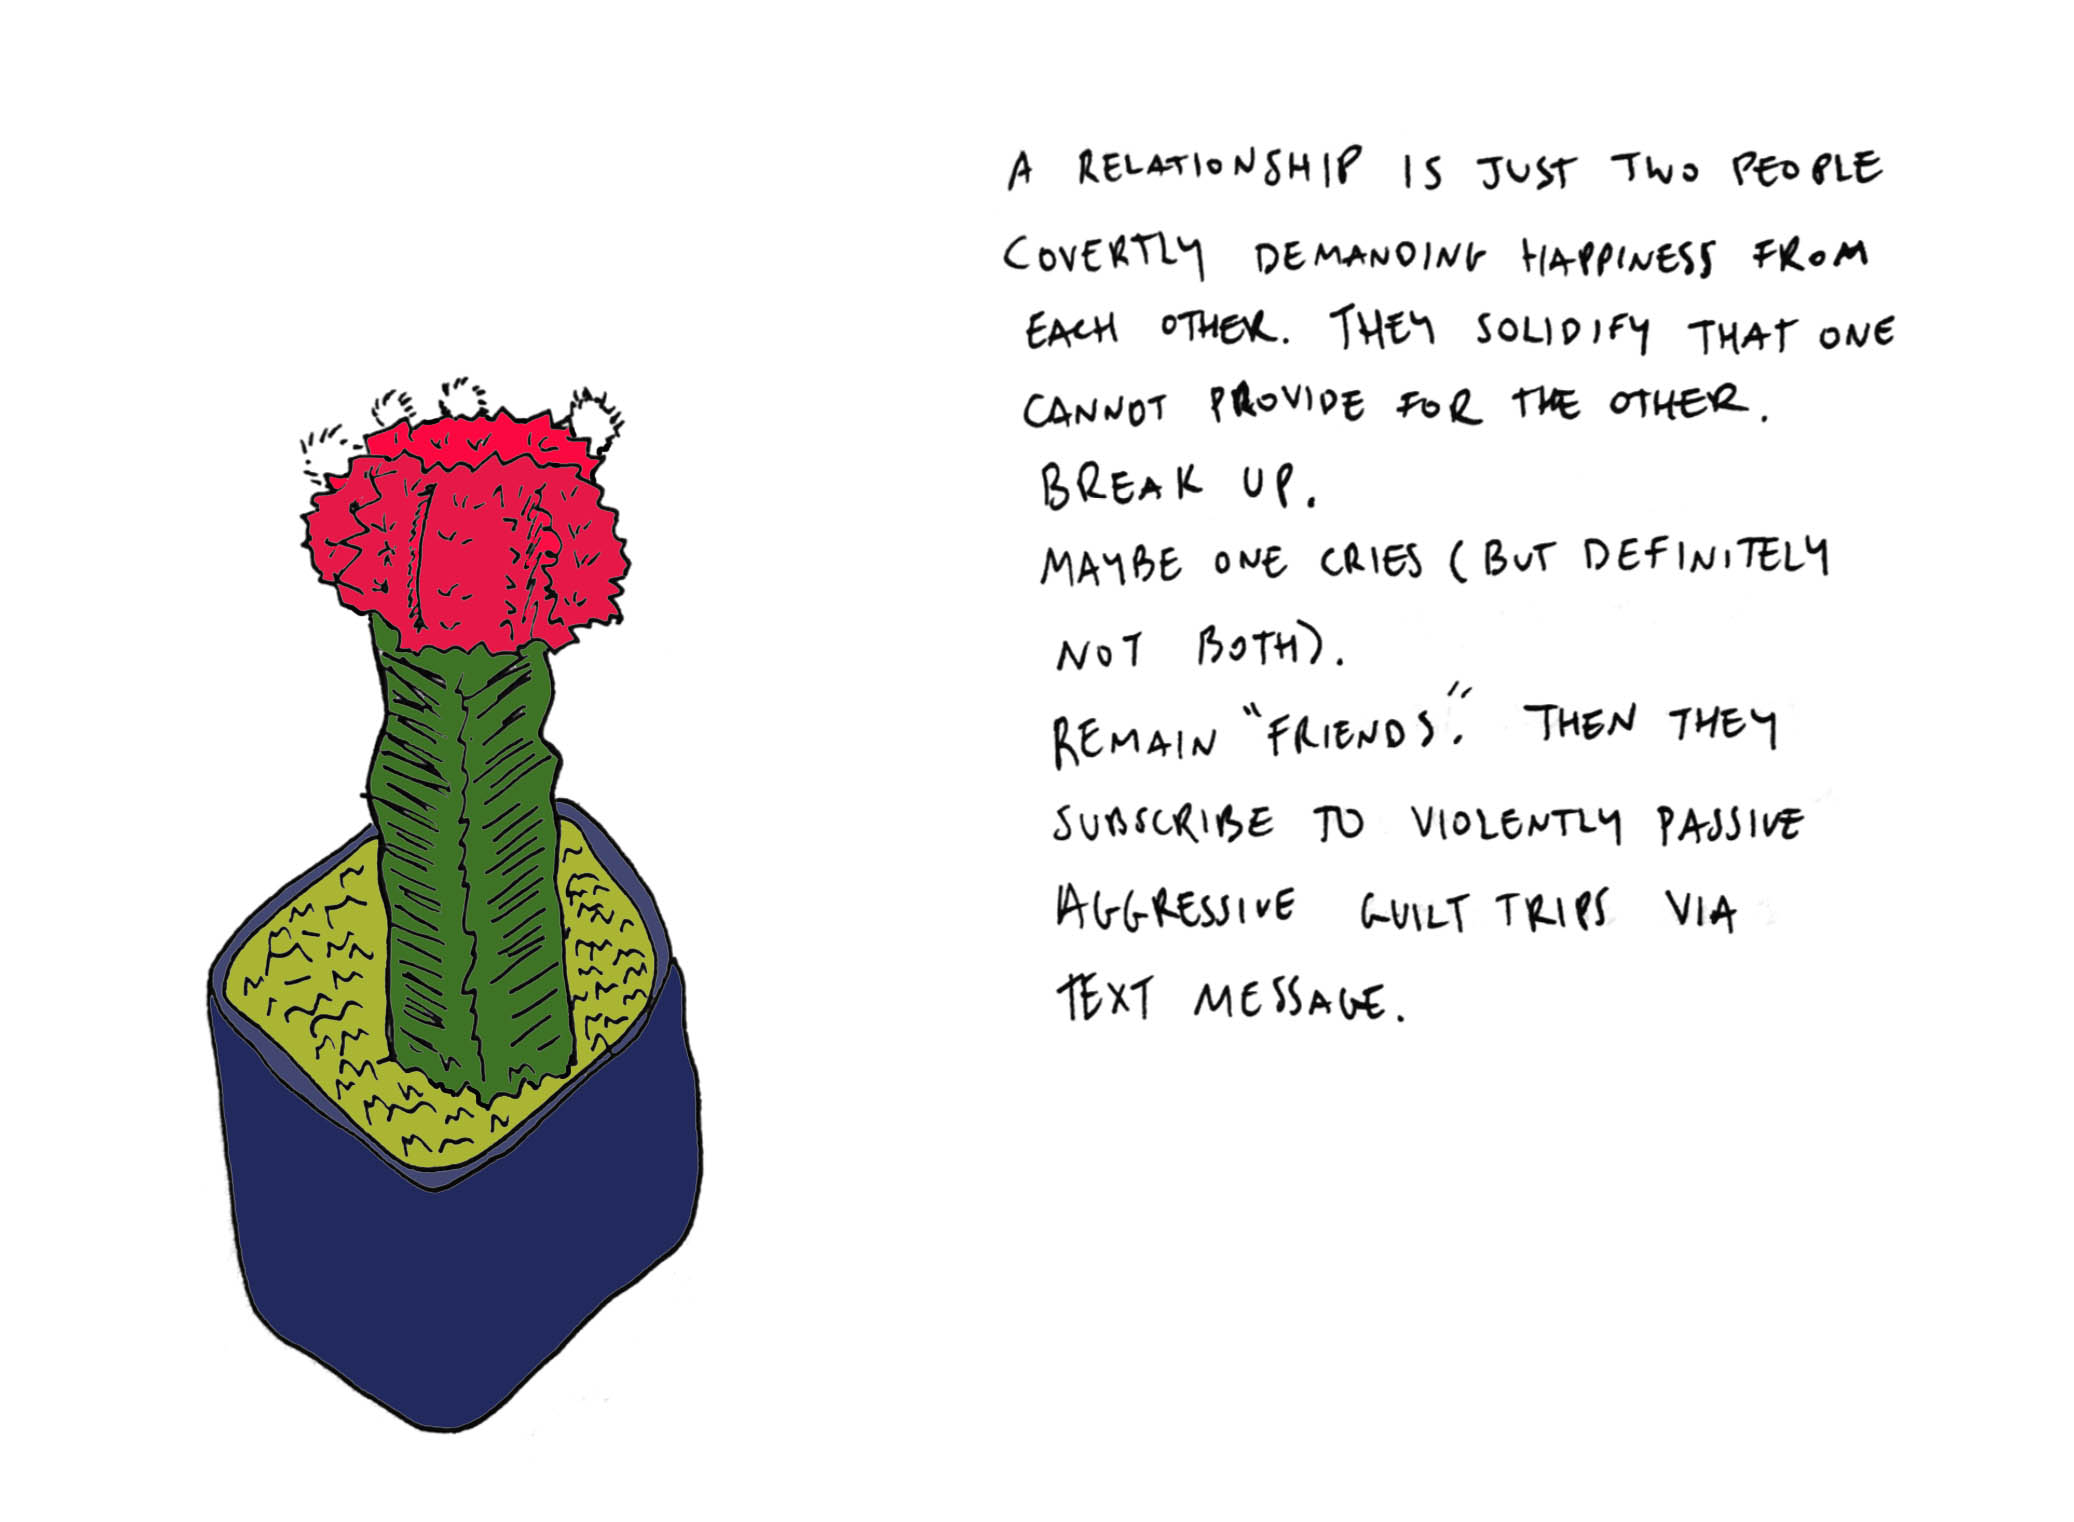 A RELATIONSHIP IS JUST TWO PEOPLE
COVERTLY DEMANDING HAPPINESS FROM
EACH OTHER. THEY SOLIDIFY THAT ONE
CANNOT PROVIDE FOR THE OTHER.
BREAK UP.
MAYBE ONE CRIES (BUT DEFINITELY
NOT BOTH).
REMAIN "FRIENDS." THEN THEY
SUBSCRIBE TO VIOLENTLY PASSIVE
AGGRESSIVE GUILT TRIPS VIA
TEXT MESSAGE.